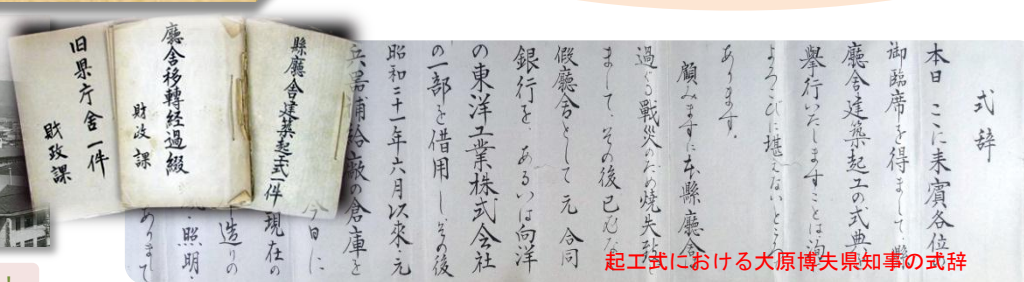 旧県庁舎一件
財政課
廳舎移轉経過綴
財政課
縣廳舎建築起工式一件
式辞
本日ここに来賓各位
御臨席を得まして、縣
廳舎建築起工の式典
擧行いたしますことは洵
よろこびに堪えないところ
あります。
顧みますに本縣廳舎
過ぐる戰災のため焼失
まして、その後已むな
假廳舎として元合同
銀行を、あるいは向洋
の東洋工業株式会社
の一部を借用し、その後
昭和二十一年六月以來、元
兵器補給廠の倉庫を
今日に
現在の
造りの
照明・
ありまして
起工式における大原博夫県知事の式辞